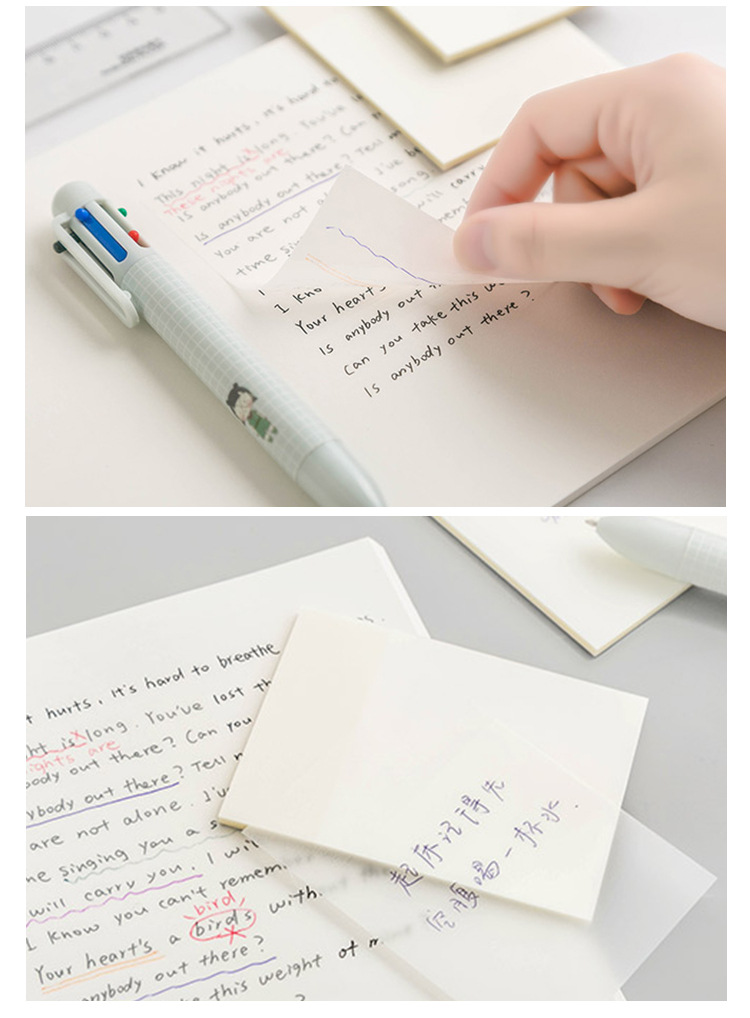 I know it hurts, it's hard
This night is long. You've
These nights are
Is anybody out there? Can
Is anybody out there? Tell
You are not
time
I
I kno
Your heart's
Is anybody out
Can you take this
Is anybody out there?
hurts, it's hard to breathe
is long. You've lost th
ights are
body out there? Can you
ybody out there? Tell
are not alone. I'v
singing you a s
will carry you. I wil
I know you can't remem
bird
Your heart's a birds with
anybody out there?
this weight of
?
起床记得先
空腹喝一杯水.